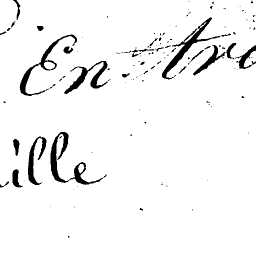 En tro
ille